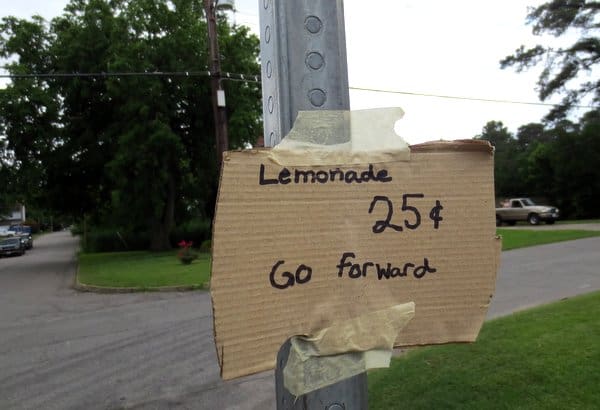 Lemonade
25¢
Go forward